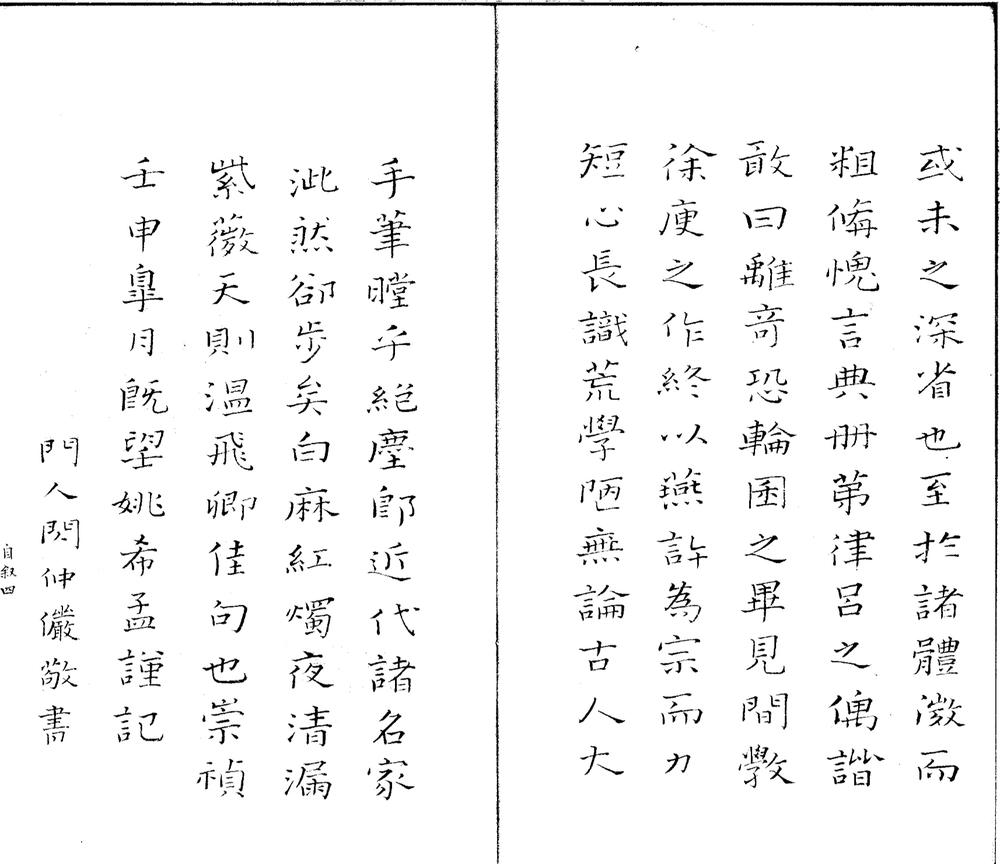 或未之深省也至於諸體澂而
粗侮愧言典冊苐律呂之偶諧
敢曰離竒恐輪囷之畢見間斆
徐庾之作終以燕許為宗而力
短心長識荒學陋無論古人大
手筆瞠乎絕塵卽近代諸名家
泚然卻步矣白麻紅燭夜清漏
紫薇天則溫飛卿佳句也崇禎
壬申皐月旣望姚希孟謹記
門人閔仲儼敬書
自叙四